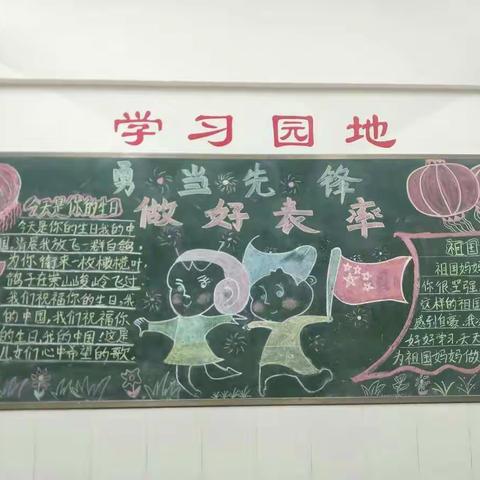 学习园地
勇当先锋
做好表率
今天是你的生日
今天是你的生日我的中
国,清晨我放飞一群白鸽,
为你衔来一枚橄榄叶
鸽子在崇山峻岭飞过
我们祝福你的生日,我
的中国,我们祝福你
的生日,我的中国!这是
儿女们心中希望的歌
祖国
祖国妈妈
你很坚强
这样的祖国
感到自豪,我
好好学习,天天
为祖国妈妈做